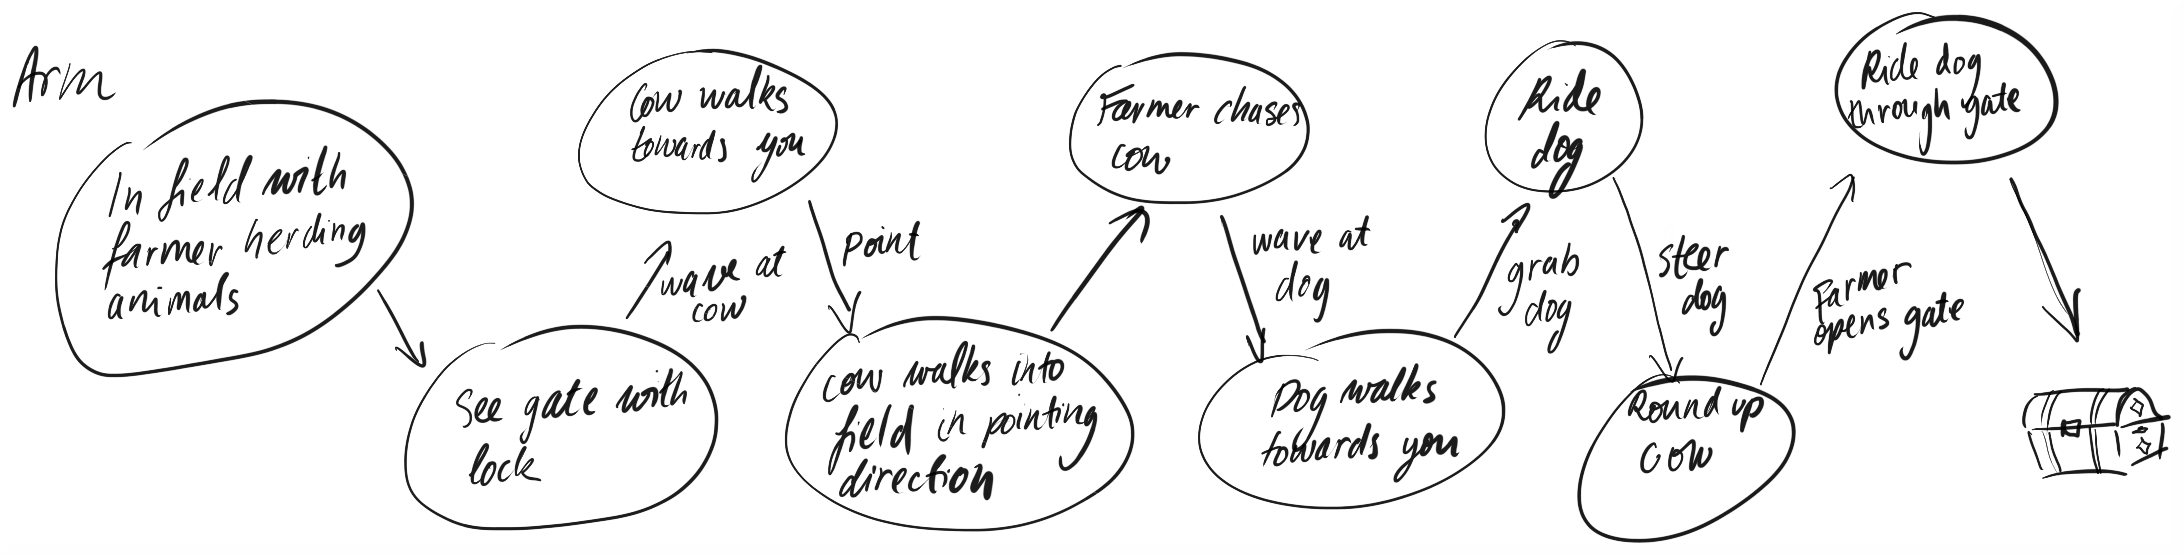 Arm
In field with
farmer herding
animals
See gate with
lock
wave at
cow
Cow walks
towards you
Point
cow walks into
field in pointing
direction
Farmer chases
cow
wave at
dog
Dog walks
towards you
grab
dog
Ride
dog
steer
dog
Round up
cow
Farmer
opens gate
Ride dog
through gate